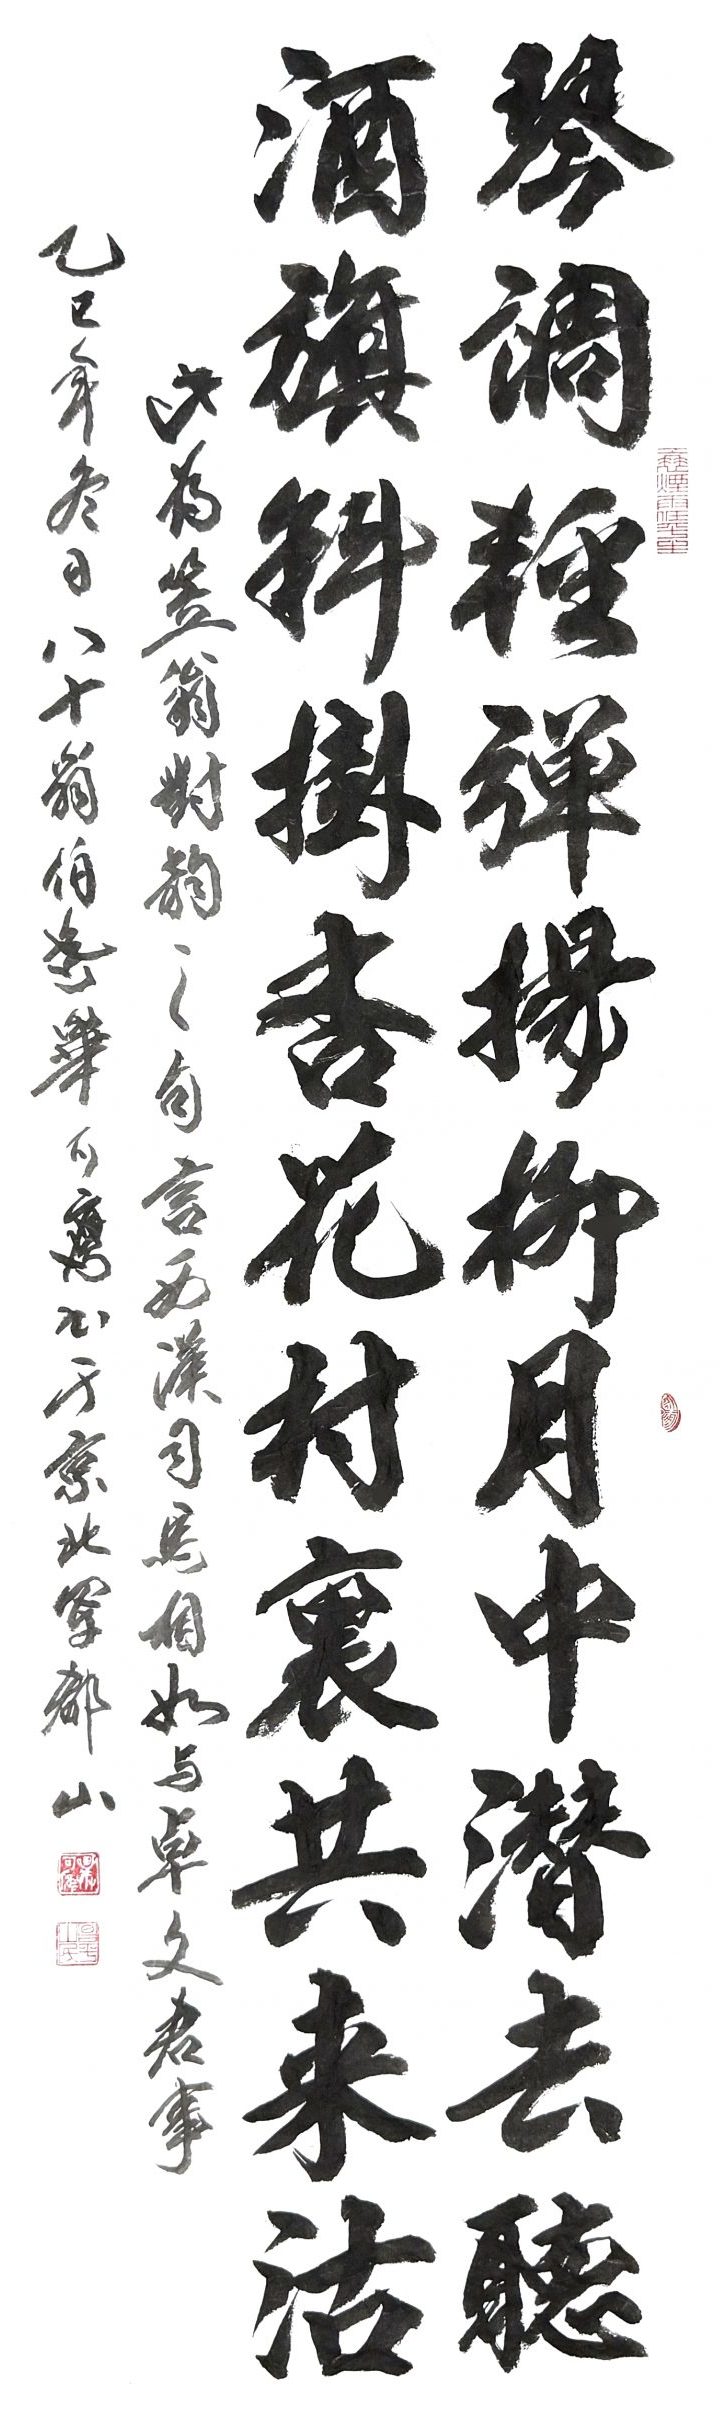 琴調輕彈揚柳月中潜去聽
酒旗斜掛杏花村裏共來沽
此為笠翁對韵之句言西漢司馬相如与卓文君事
乙巳年冬日八十翁伯岳畢可鷹书于京北軍都山